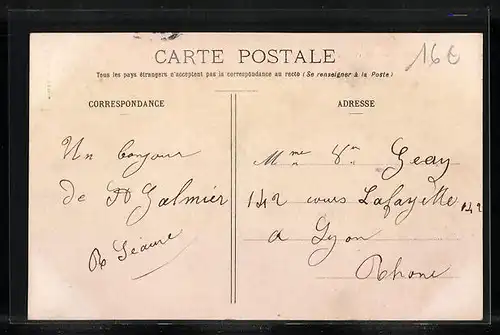 CARTE POSTALE
16€
Tous les pays étrangers n'acceptent pas la correspondance au recto (Se renseigner à la Poste)
CORRESPONDANCE
Un bonjour
de St Galmier
ADRESSE
Mme Vve Geay
142 cours Lafayette 142
a Lyon
Rhone